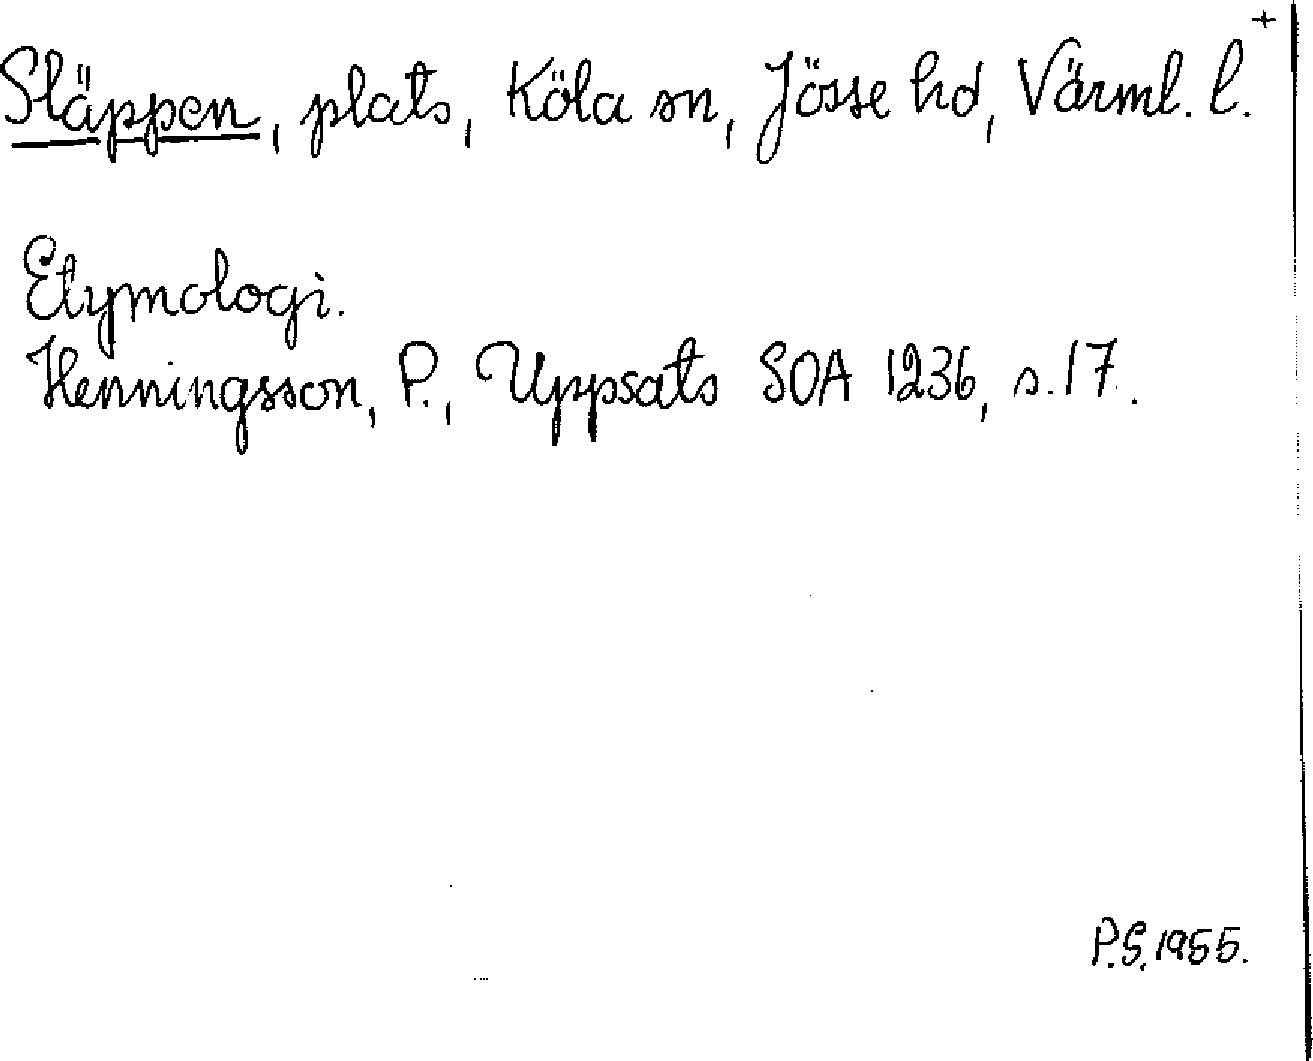 Släppen, plats, Köla sn, Jösse hd, Värml. l. +
Etymologi.
Henningsson, P., Uppsats SOA 1236, s. 17.
P.S. 1955.